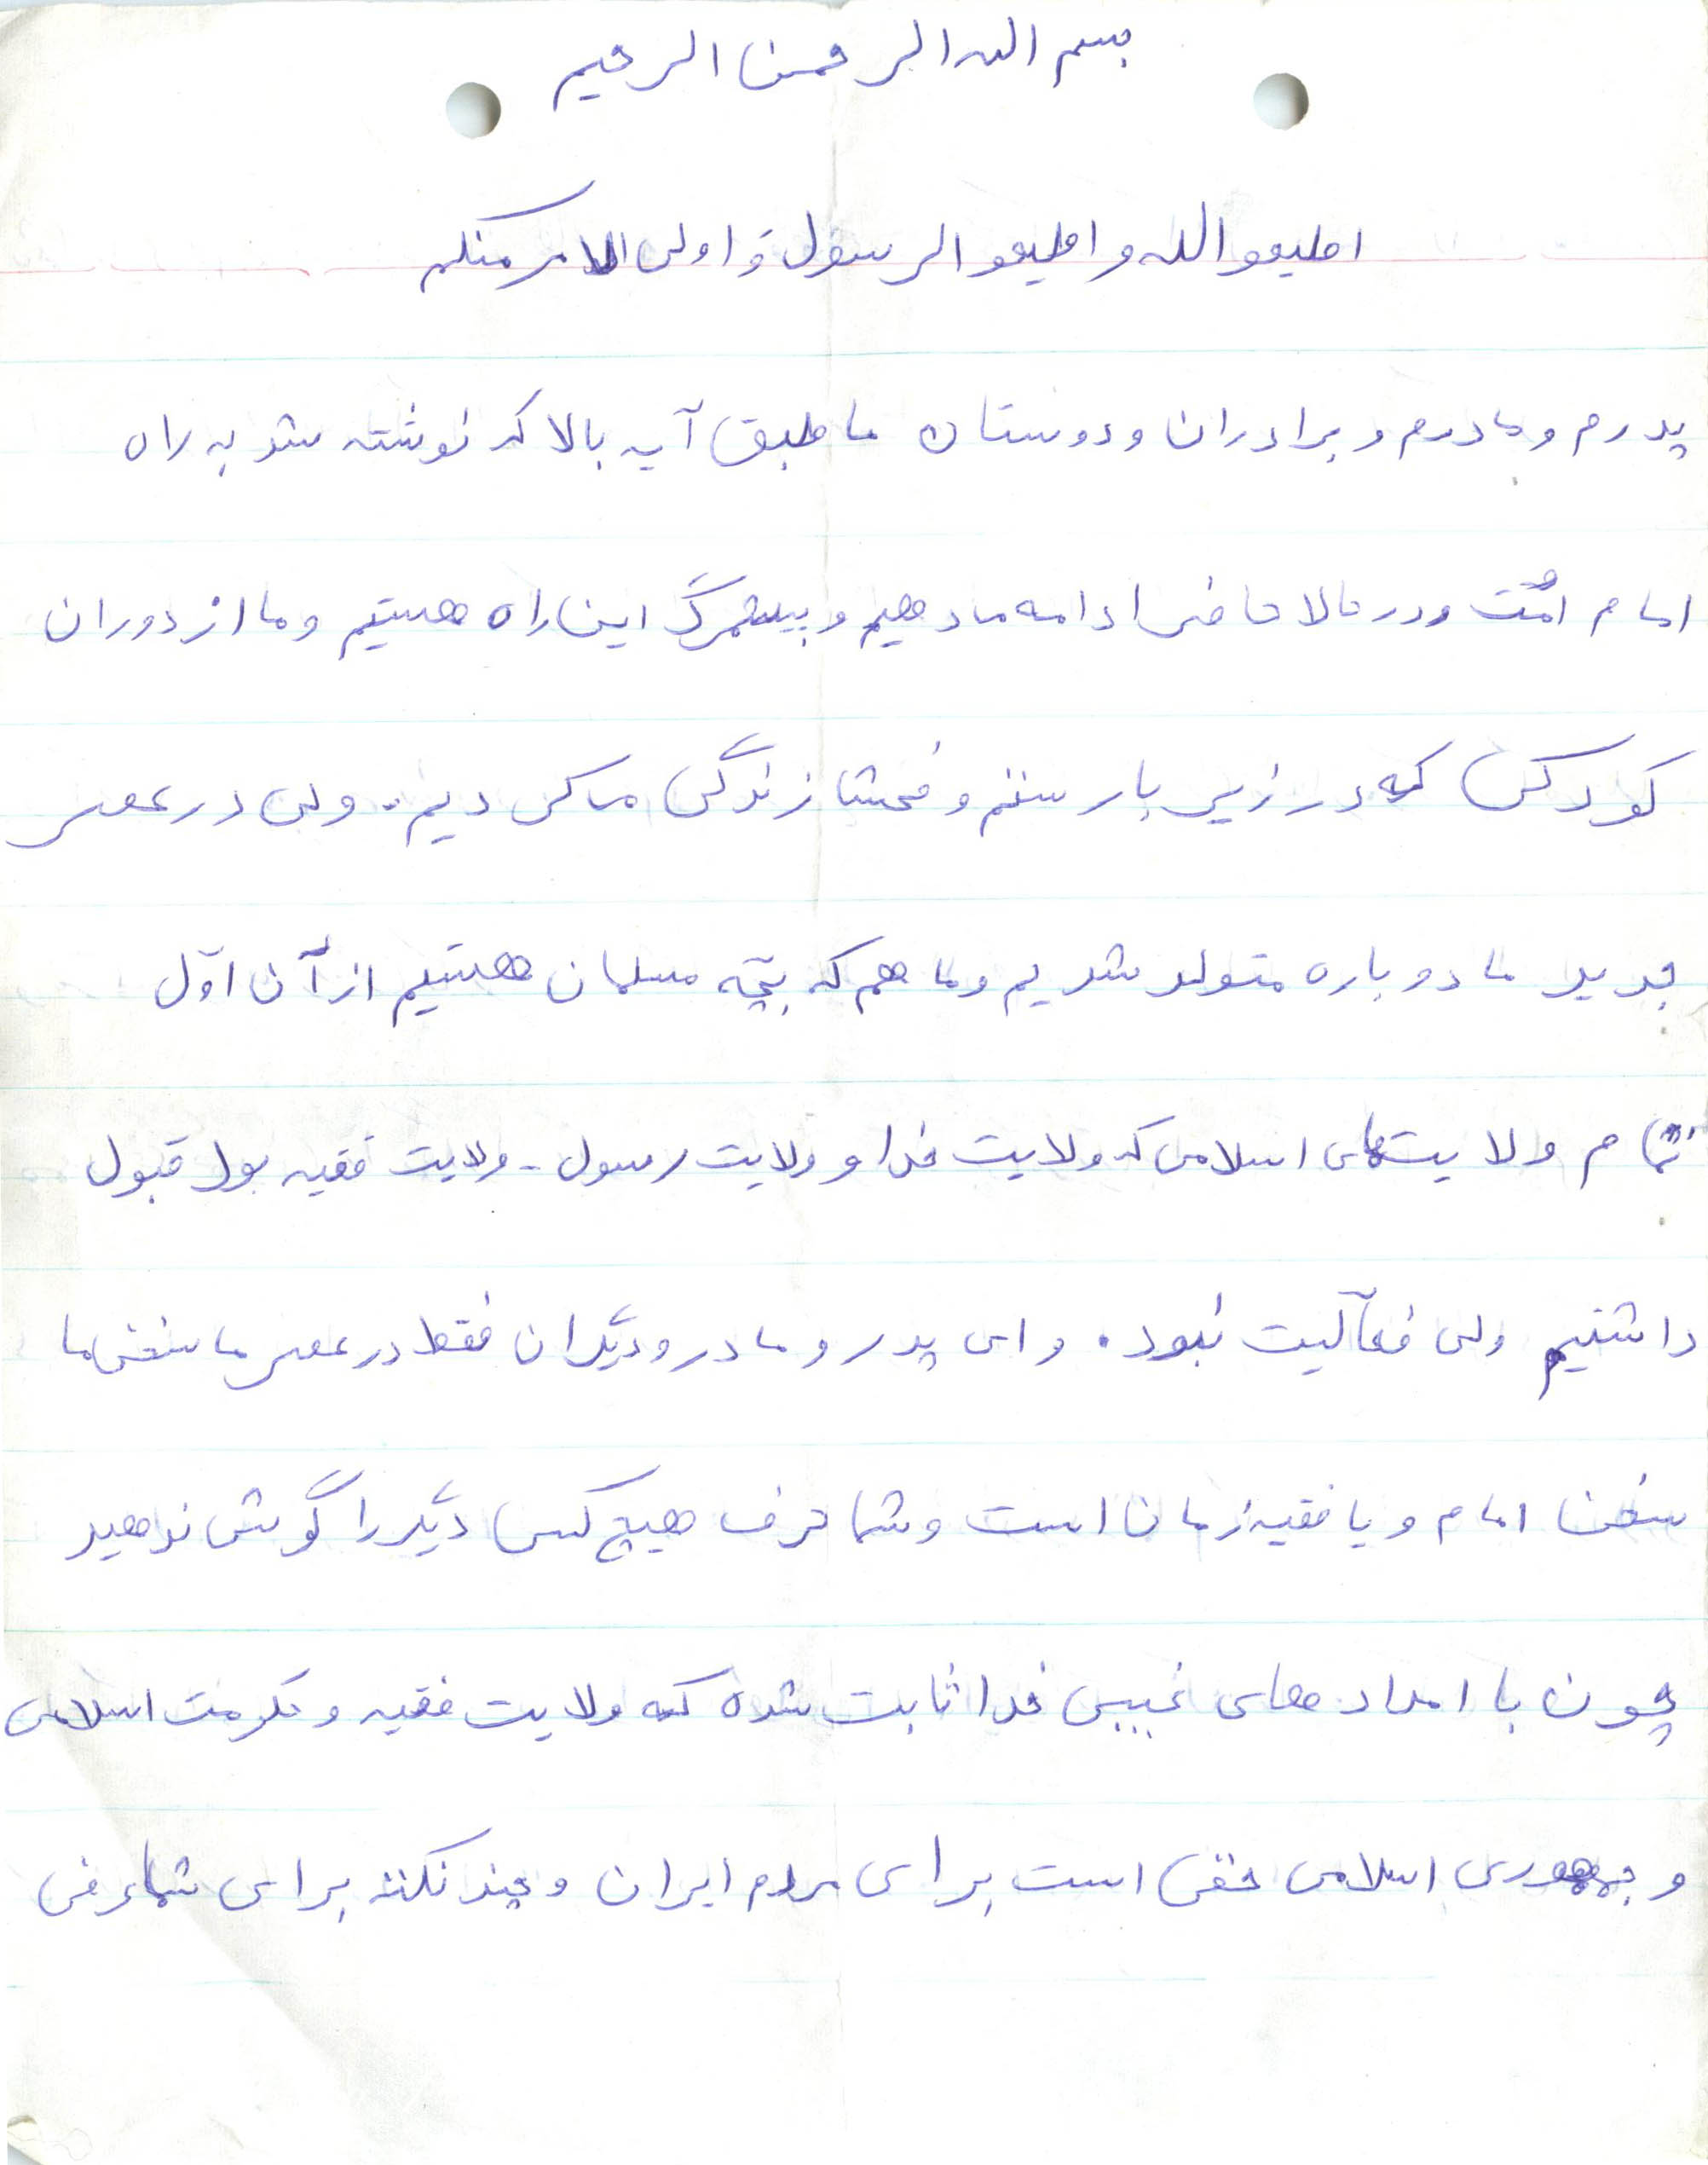 بسم الله الرحمن الرحیم
اطیعو الله و اطیعو الرسول وَ اولی الامر منکم
پدرم و مادرم و برادران و دوستان ما طبق آیه بالا که نوشته شد به راه
امام امّت ودر حالا حاضر ادامه ما دهیم و پیشمرگ این راه هستیم و ما از دوران
کودکی که در زیر بار ستم و فحشا زندگی ما کی دیم. ولی در عصر
جدید ما دوباره متولد شدیم و ما هم که بچّه مسلمان هستیم از آن اوّل
تمام ولایت‌های اسلامی که ولایت خدا و ولایت رسول - ولایت فقیه بود قبول
داشتیم ولی فعآلیت نبود. و ای پدر و مادر و دیگران فقط در عصر ما سخن ما
سخن امام و یا فقیه زمان است و شما حرف هیچ کس دیگر را گوش ندهید
چون با امداد های غیبی خدا ثابت شده که ولایت فقیه و حکومت اسلامی
و جمهوری اسلامی حقی است برای مردم ایران و چند نکته برای شما عرض